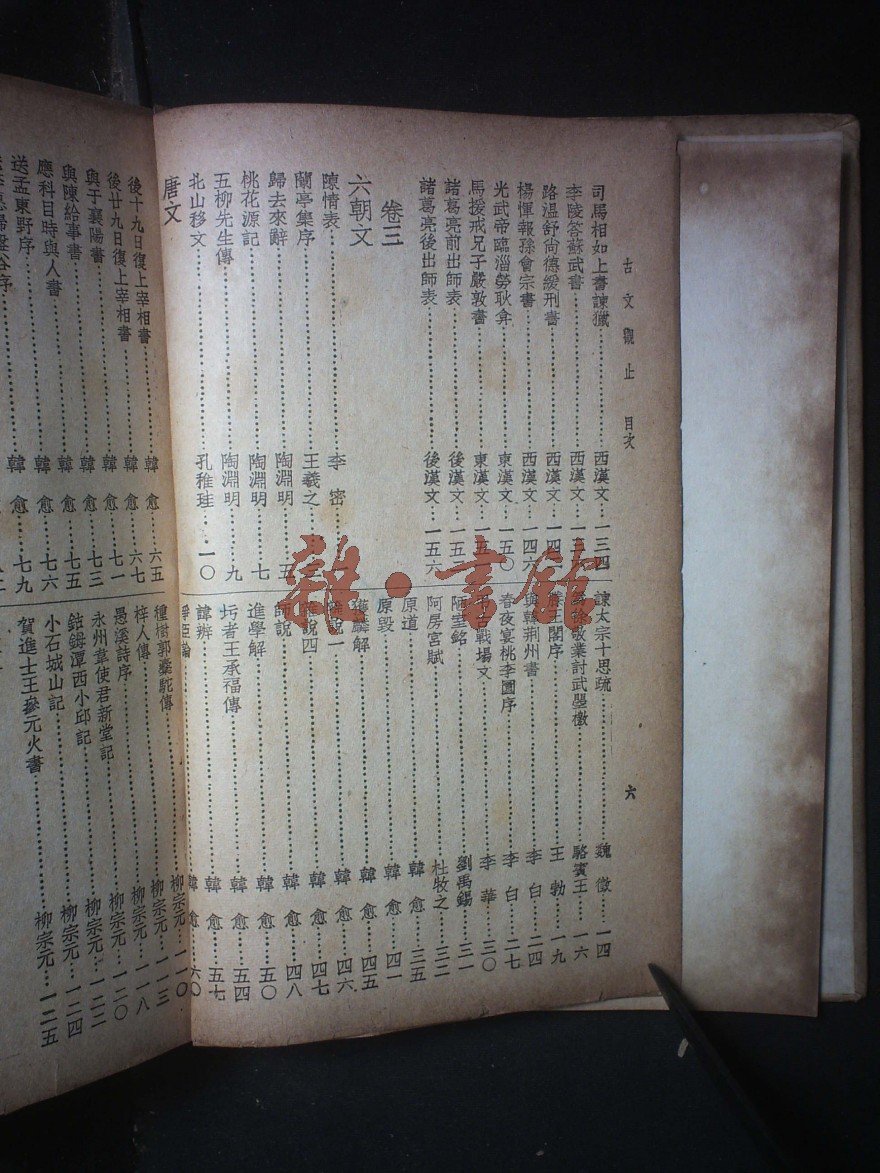 古文觀止 目次
六
司馬相如上書諫獵 西漢文 一三四
李陵答蘇武書 西漢文 一三六
路溫舒尚德緩刑書 西漢文 一四二
楊惲報孫會宗書 西漢文 一四六
光武帝臨淄勞耿弇 東漢文 一五〇
馬援戒兄子嚴敦書 東漢文 一五一
諸葛亮前出師表 後漢文 一五二
諸葛亮後出師表 後漢文 一五六
卷三
六朝文
陳情表 李密
蘭亭集序 王羲之
歸去來辭 陶淵明 五
桃花源記 陶淵明 七
五柳先生傳 陶淵明 九
北山移文 孔稚珪 一〇
唐文
諫太宗十思疏 魏徵 一四
徐敬業討武曌檄 駱賓王 一六
滕王閣序 王勃 一九
與韓荊州書 李白 二四
春夜宴桃李園序 李白 二七
弔古戰場文 李華 三〇
陋室銘 劉禹錫 三一
阿房宮賦 杜牧之 三二
原道 韓愈 三五
原毀 韓愈 四一
獲麟解 韓愈 四五
雜說一 韓愈 四六
雜說四 韓愈 四七
師說 韓愈 四八
進學解 韓愈 五〇
圬者王承福傳 韓愈 五四
諱辨 韓愈 五七
爭臣論 韓愈 六〇
後十九日復上宰相書 韓愈 六五
後廿九日復上宰相書 韓愈 六七
與于襄陽書 韓愈 七一
與陳給事書 韓愈 七三
應科目時與人書 韓愈 七五
送孟東野序 韓愈 七六
七九
種樹郭橐駝傳 柳宗元 一一〇
梓人傳 柳宗元 一一三
愚溪詩序 柳宗元 一一八
永州韋使君新堂記 柳宗元 一二〇
鈷鉧潭西小邱記 柳宗元 一二二
小石城山記 柳宗元 一二四
賀進士王參元火書 柳宗元 一二五
雜·書館